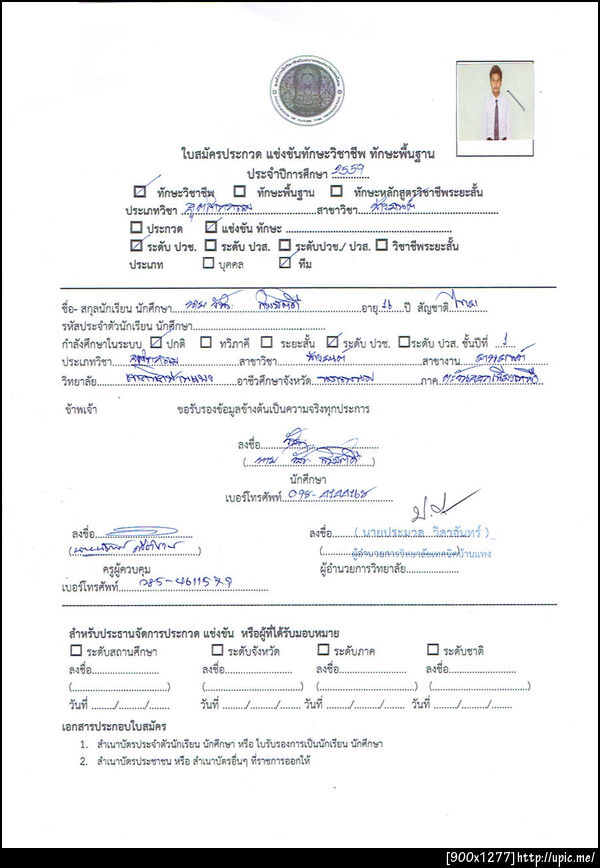 ใบสมัครประกวด แข่งขันทักษะวิชาชีพ ทักษะพื้นฐาน
ประจำปีการศึกษา 2559
ทักษะวิชาชีพ ทักษะพื้นฐาน ทักษะหลักสูตรวิชาชีพระยะสั้น
ประเภทวิชา อุตสาหกรรม สาขาวิชา ช่างยนต์
ประกวด แข่งขัน ทักษะ
ระดับ ปวช. ระดับ ปวส. ระดับปวช./ ปวส. วิชาชีพระยะสั้น
ประเภท บุคคล ทีม
ชื่อ- สกุลนักเรียน นักศึกษา อายุ 16 ปี สัญชาติ ไทย
รหัสประจำตัวนักเรียน นักศึกษา
กำลังศึกษาในระบบ ปกติ ทวิภาคี ระยะสั้น ระดับ ปวช. ระดับ ปวส. ชั้นปีที่ 1
ประเภทวิชา อุตสาหกรรม สาขาวิชา ช่างยนต์ สาขางาน ยานยนต์
วิทยาลัย เทคนิคบ้านแพง อาชีวศึกษาจังหวัด นครพนม ภาค ตะวันออกเฉียงเหนือ
ข้าพเจ้า ขอรับรองข้อมูลข้างต้นเป็นความจริงทุกประการ
ลงชื่อ
นักศึกษา
เบอร์โทรศัพท์
ลงชื่อ ลงชื่อ (นายประมวล วิลาจันทร์)
ผู้อำนวยการวิทยาลัยเทคนิคบ้านแพง
ครูผู้ควบคุม ผู้อำนวยการวิทยาลัย
เบอร์โทรศัพท์ 085-4611579
สำหรับประธานจัดการประกวด แข่งขัน หรือผู้ที่ได้รับมอบหมาย
ระดับสถานศึกษา ระดับจังหวัด ระดับภาค ระดับชาติ
ลงชื่อ ลงชื่อ ลงชื่อ ลงชื่อ
วันที่ วันที่ วันที่ วันที่
เอกสารประกอบใบสมัคร
1. สำเนาบัตรประจำตัวนักเรียน นักศึกษา หรือ ใบรับรองการเป็นนักเรียน นักศึกษา
2. สำเนาบัตรประชาชน หรือ สำเนาบัตรอื่นๆ ที่ราชการออกให้
[900x1277]http://upic.me/